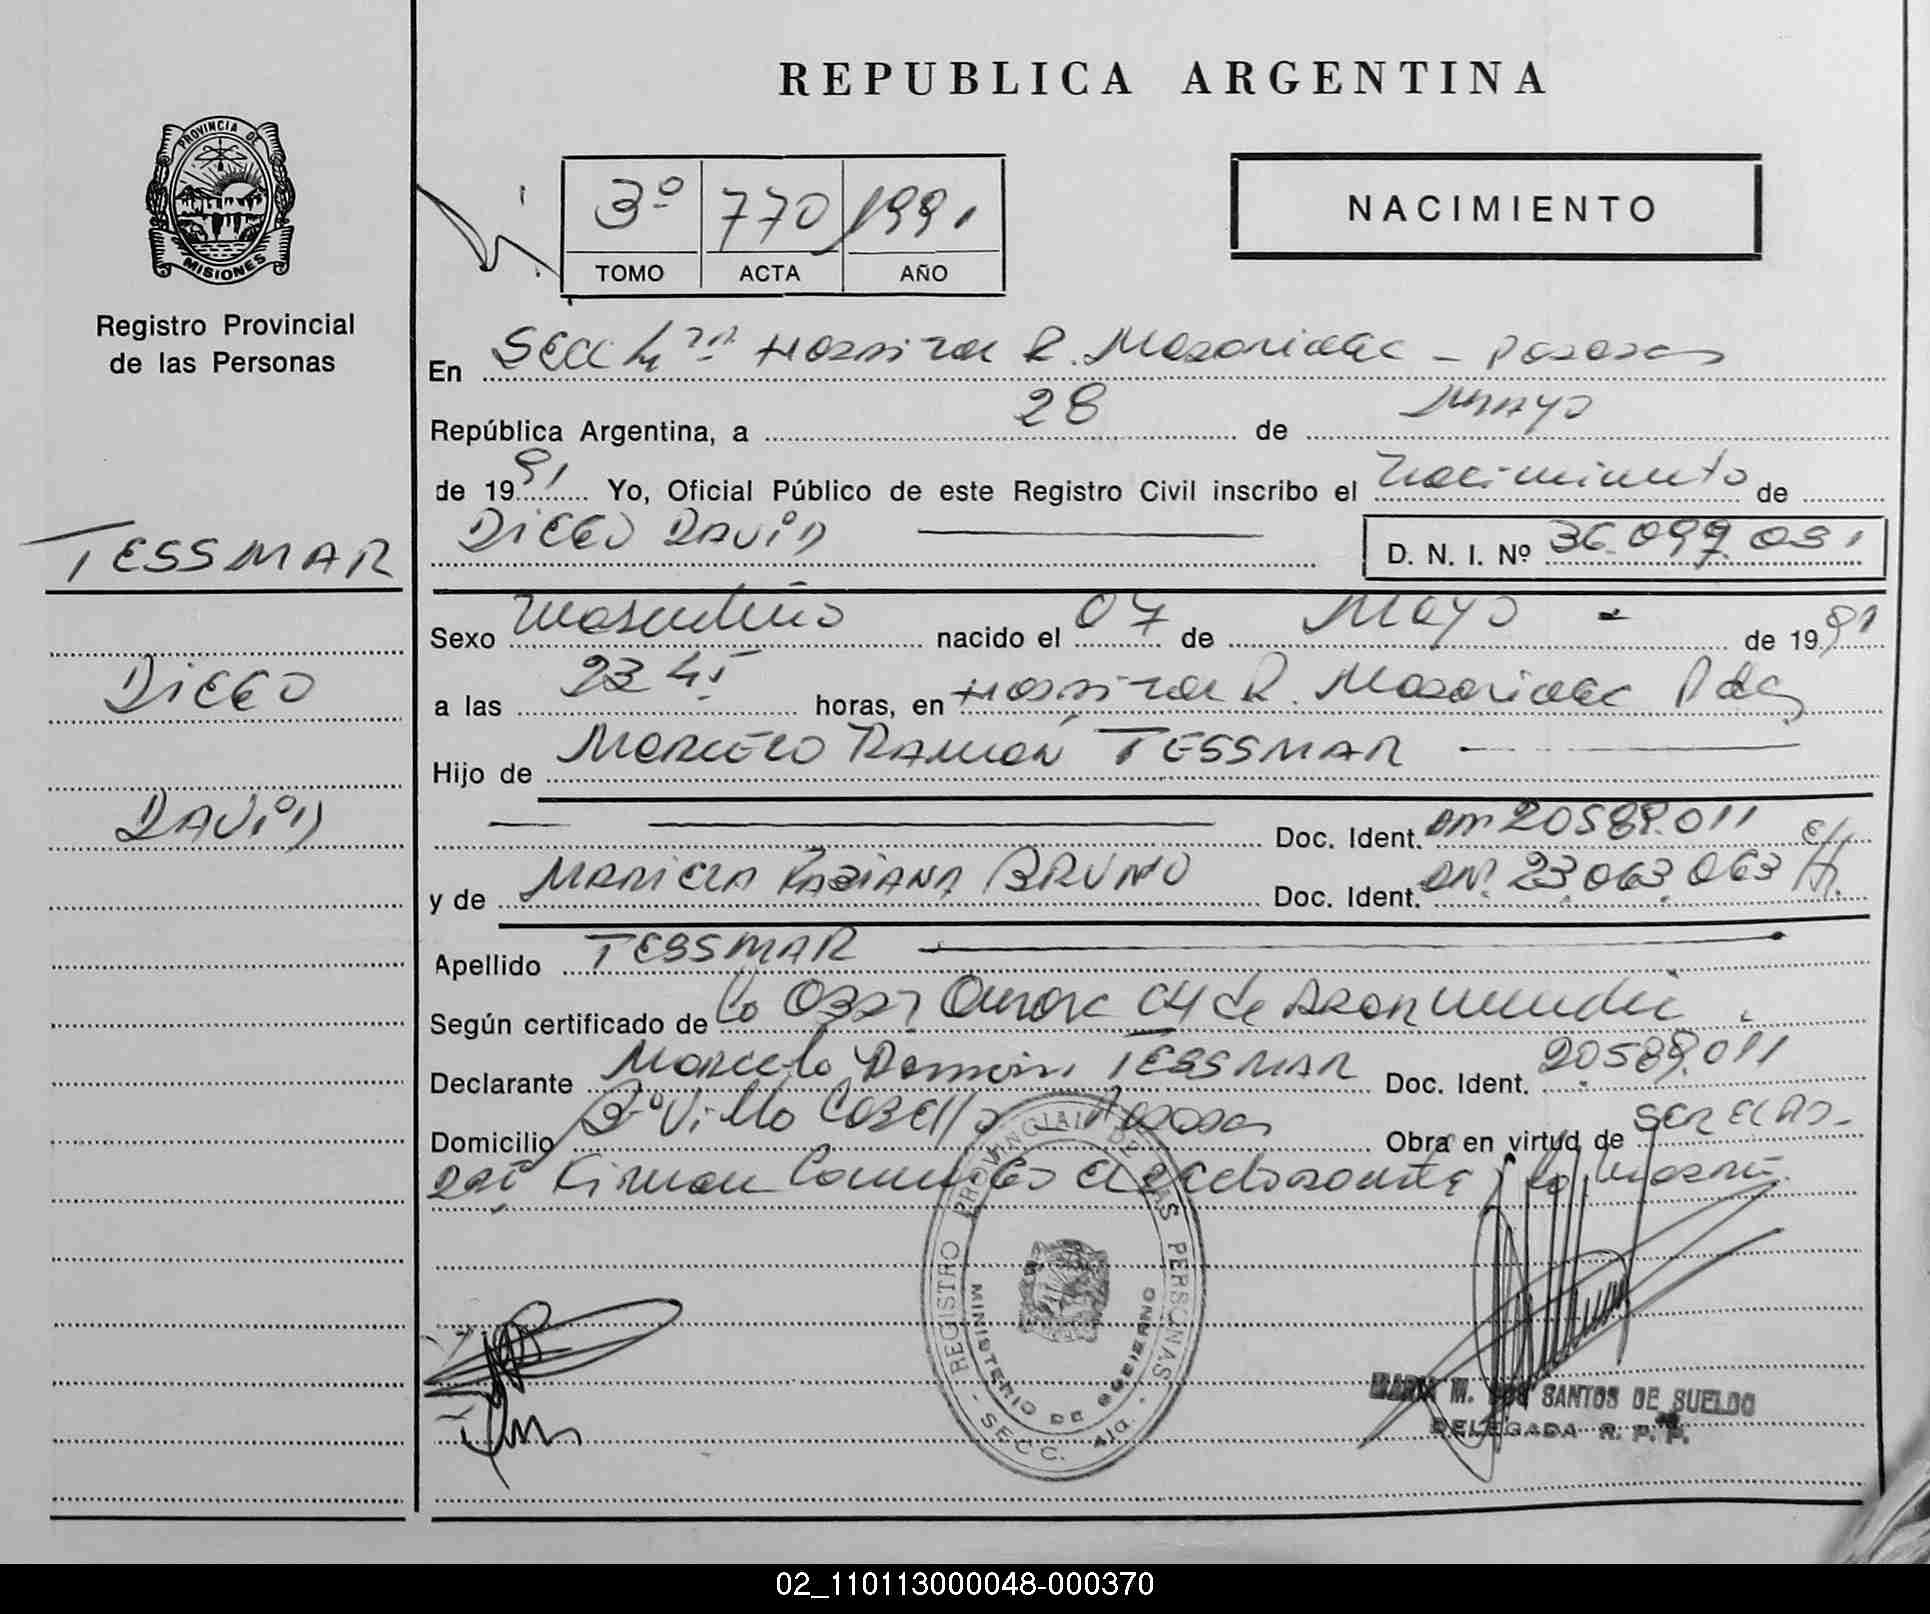 REPUBLICA ARGENTINA
PROVINCIA DE
MISIONES
Registro Provincial
de las Personas
3º 770 1991
TOMO ACTA AÑO
NACIMIENTO
En Secc 4ta Hospital R. Madariaga - Posadas
República Argentina, a 28 de Mayo
de 1991 Yo, Oficial Público de este Registro Civil inscribo el Nacimiento de
DIEGO DAVID D. N. I. Nº 36.099.031
TESSMAR
DIEGO
DAVID
Sexo Masculino nacido el 07 de Mayo de 1991
a las 23 45 horas, en Hospital R. Madariaga Pdas
Hijo de Marcelo Ramón TESSMAR
Doc. Ident. DNI 20589.011
y de MARIELA FABIANA BRUNO Doc. Ident. DNI 23.063.063
Apellido TESSMAR
Según certificado de la Obst
Declarante Marcelo Ramón TESSMAR Doc. Ident. 20.589.011
Domicilio Bº Villa Cabello Posadas Obra en virtud de SER EL PA-
Firman el declarante y la
REGISTRO PROVINCIAL DE LAS PERSONAS
MINISTERIO DE GOBIERNO
- SECC. 4ta. -
MARIA M. DOS SANTOS DE SUELDO
DELEGADA R. P. P.
02_110113000048-000370